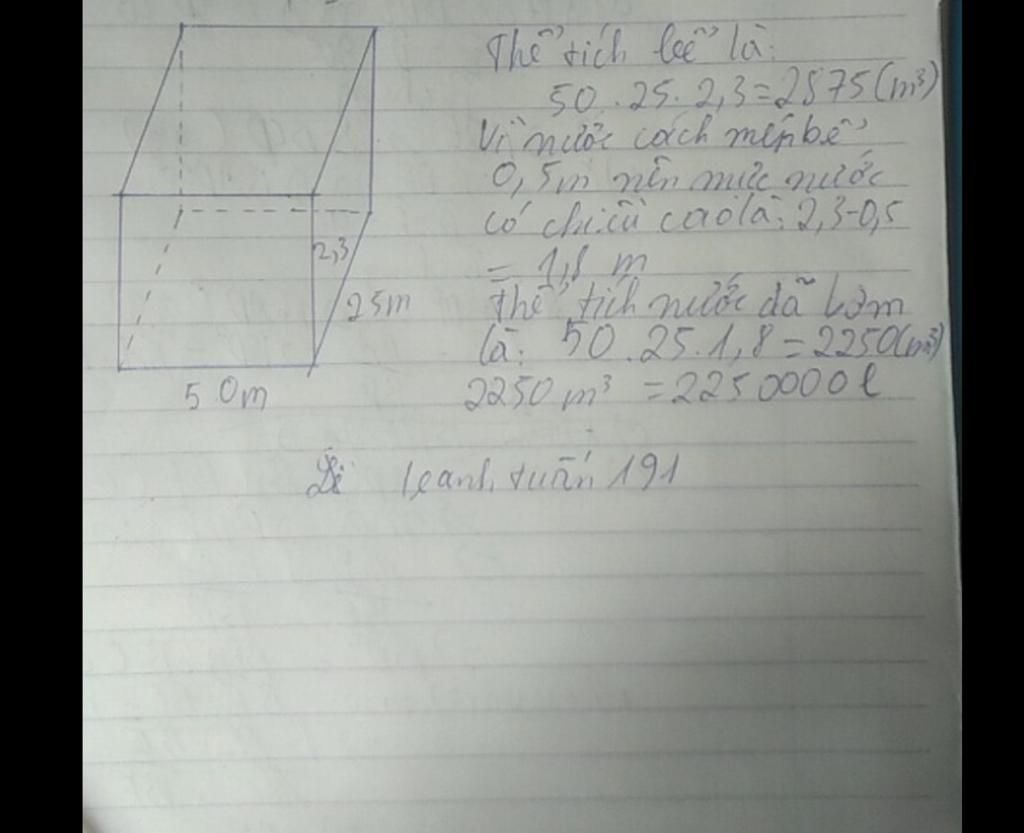 Thể tích bể là:
50.25.2,3=2875(m³)
Vì nước cách mép bể
0,5m nên mức nước
có chiều cao là: 2,3-0,5
= 1,8 m
Thể tích nước đã bơm
là: 50.25.1,8=2250(m³)
2250m³ =2250000l
2,3
25m
50m
leanh tuấn 191